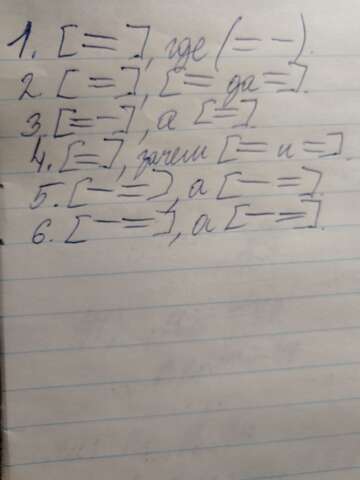 1. [=], где (= -).
2. [=], [= да =].
3. [= -], а [=].
4. [=], зачем [= и =].
5. [- =], а [- =].
6. [- =], а [- =].